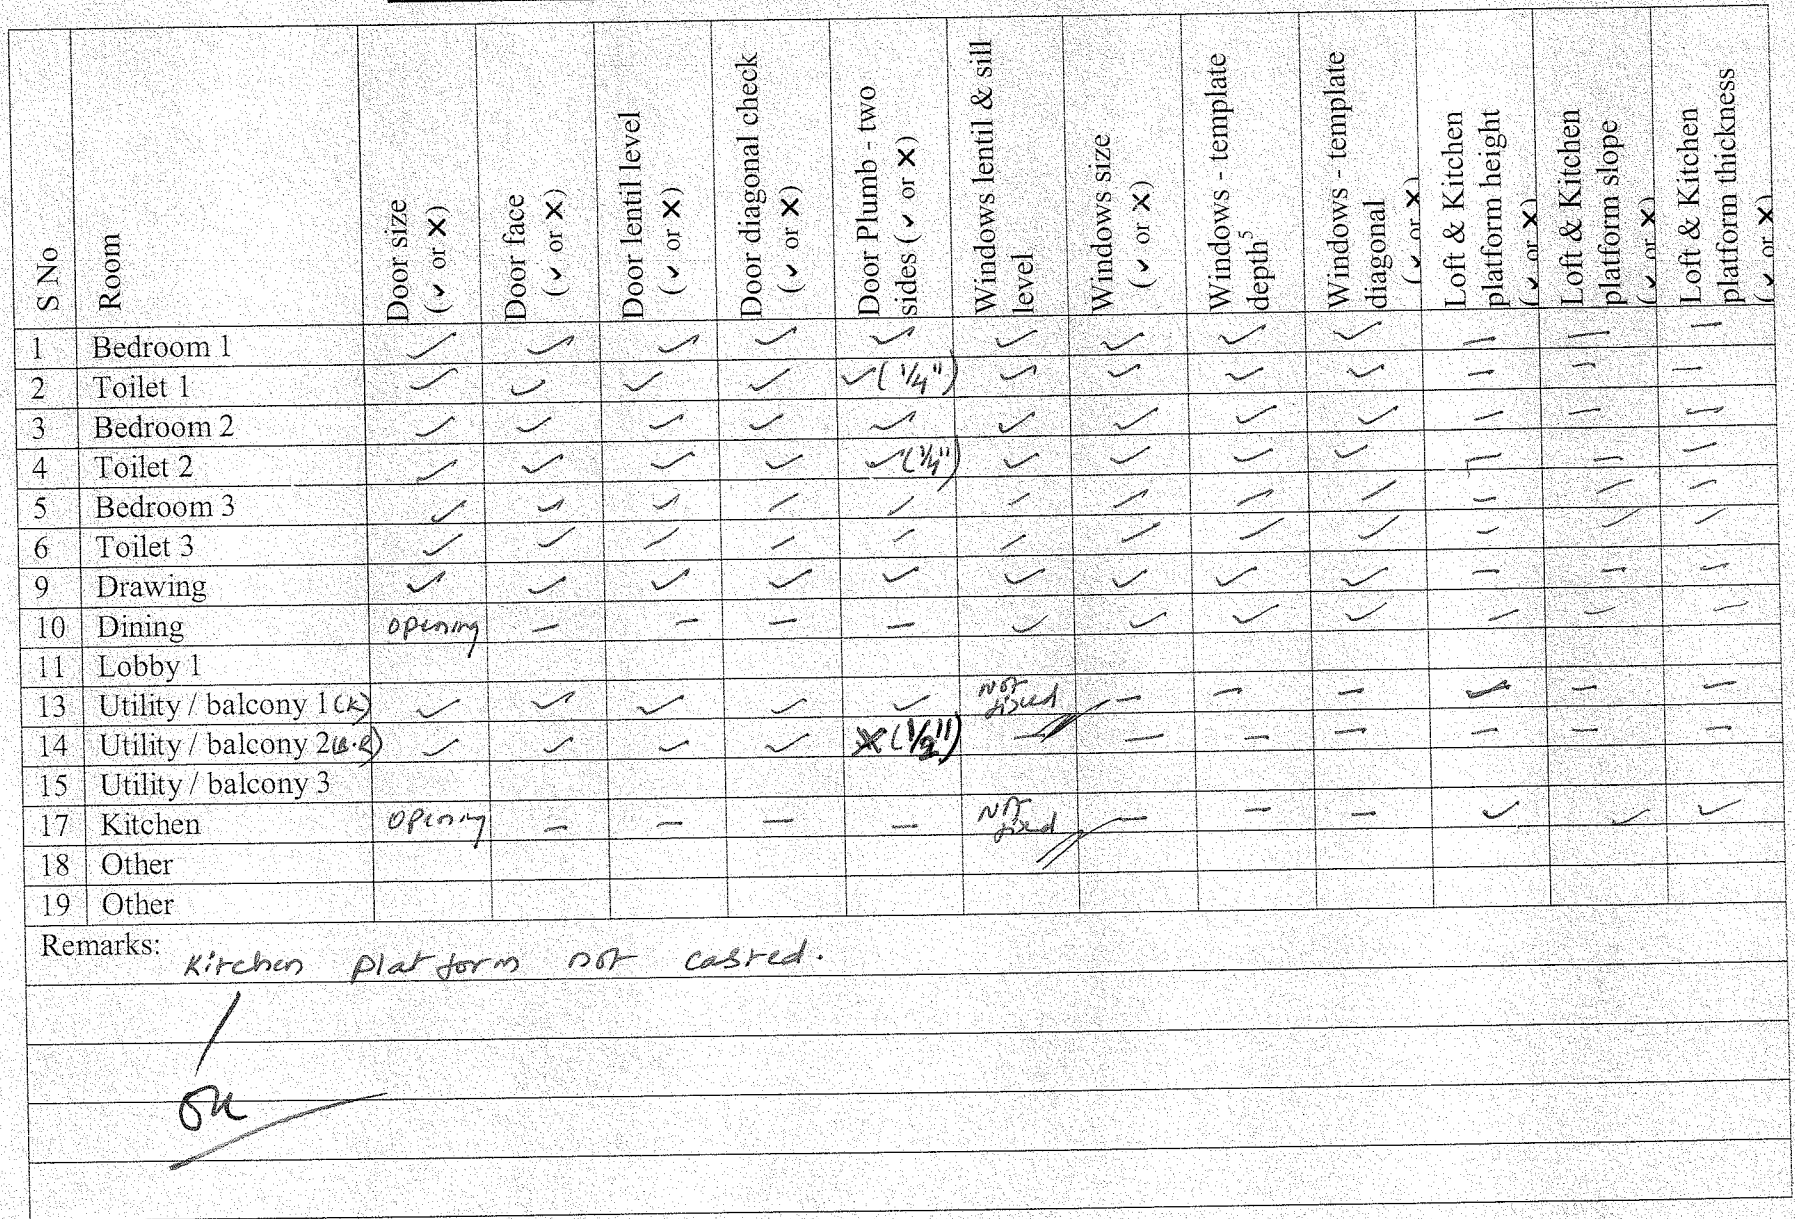 S No
Room
Door size
(✓ or ✕)
Door face
(✓ or ✕)
Door lentil level
(✓ or ✕)
Door diagonal check
(✓ or ✕)
Door Plumb - two
sides (✓ or ✕)
Windows lentil & sill
level
Windows size
(✓ or ✕)
Windows - template
depth⁵
Windows - template
diagonal
(✓ or ✕)
Loft & Kitchen
platform height
(✓ or ✕)
Loft & Kitchen
platform slope
(✓ or ✕)
Loft & Kitchen
platform thickness
(✓ or ✕)
1 Bedroom 1 ✓ ✓ ✓ ✓ ✓ ✓ ✓ ✓ ✓ – – –
2 Toilet 1 ✓ ✓ ✓ ✓ ✓(1/4") ✓ ✓ ✓ ✓ – – –
3 Bedroom 2 ✓ ✓ ✓ ✓ ✓ ✓ ✓ ✓ ✓ – – –
4 Toilet 2 ✓ ✓ ✓ ✓ ✓(1/4") ✓ ✓ ✓ ✓ – – –
5 Bedroom 3 ✓ ✓ ✓ ✓ ✓ ✓ ✓ ✓ ✓ – – –
6 Toilet 3 ✓ ✓ ✓ ✓ ✓ ✓ ✓ ✓ ✓ – – –
9 Drawing ✓ ✓ ✓ ✓ ✓ ✓ ✓ ✓ ✓ – – –
10 Dining opening – – – – ✓ ✓ ✓ ✓ – – –
11 Lobby 1
13 Utility / balcony 1(K) ✓ ✓ ✓ ✓ ✓ Not fixed – – – ✓ – –
14 Utility / balcony 2 ✓ ✓ ✓ ✓ ✕(1/2") – – – – – – –
15 Utility / balcony 3
17 Kitchen opening – – – – Not fixed – – – ✓ ✓ ✓
18 Other
19 Other
Remarks: Kitchen platform not casted.
OK